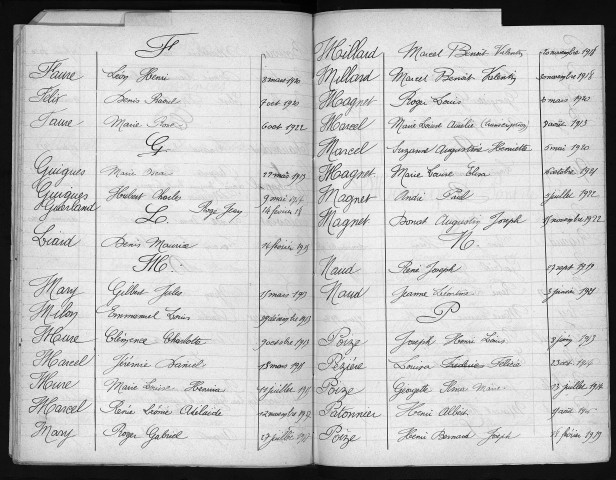 F
Faure Léon Henri 8 mars 1920
Félix Denis Raoul 7 oct 1920
Faure Marie Rose 6 oct 1922
G
Guigues Marie 22 mai 1913
Guigues Hubert Charles 9 mai 1914
Guerland Roger Jean 14 février 18
L
Liard Denis Maurice 14 février 1915
M
Mary Gilbert Jules 15 mars 1913
Milon Emmanuel Louis 29 décembre 1913
Mure Clémence Charlotte 9 octobre 1913
Marcel Jérémie Daniel 18 mars 1915
Mure Marie Louise juillet
Marcel Renée Léonie Adélaïde novembre
Mary Roger Gabriel 27 juillet 1917
Millard Marcel Benoit Valentin 20 novembre 1918
Millard Marcel Benoit Valentin 20 novembre 1918
Magnet Roger Louis mars 1920
Marcel Marie Louise Amélie (transcription) août 1913
Marcel Suzanne Augustine Henriette 6 mai 1920
Magnet Marie Laure Elisa octobre 1921
Magnet André Paul juillet 1922
Magnet Donat Augustin Joseph 18 novembre 1922
N
Naud René Joseph 27 sept 1919
Naud Jeanne janvier 1921
P
Poize Joseph Henri Louis juin 1913
Pézière Louisa Frédérica Félicie 23 oct 1914
Poize Georgette Irma Marie 13 juillet 1914
Patonnier Henri Albert août
Poize Henri Bernard Joseph 18 février 1919